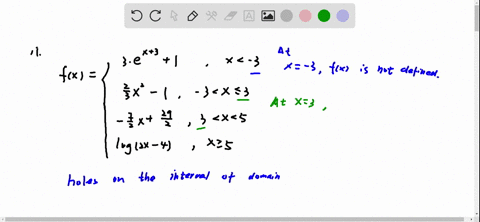 11.
f(x) = { 3·e^(x+3) + 1 , x < -3
2/3 x² - 1 , -3 < x ≤ 3
-7/2 x + 29/2 , 3 < x < 5
log(2x-4) , x ≥ 5
At
x = -3, f(x) is not defined.
At x=3 ,
holes on the interval of domain